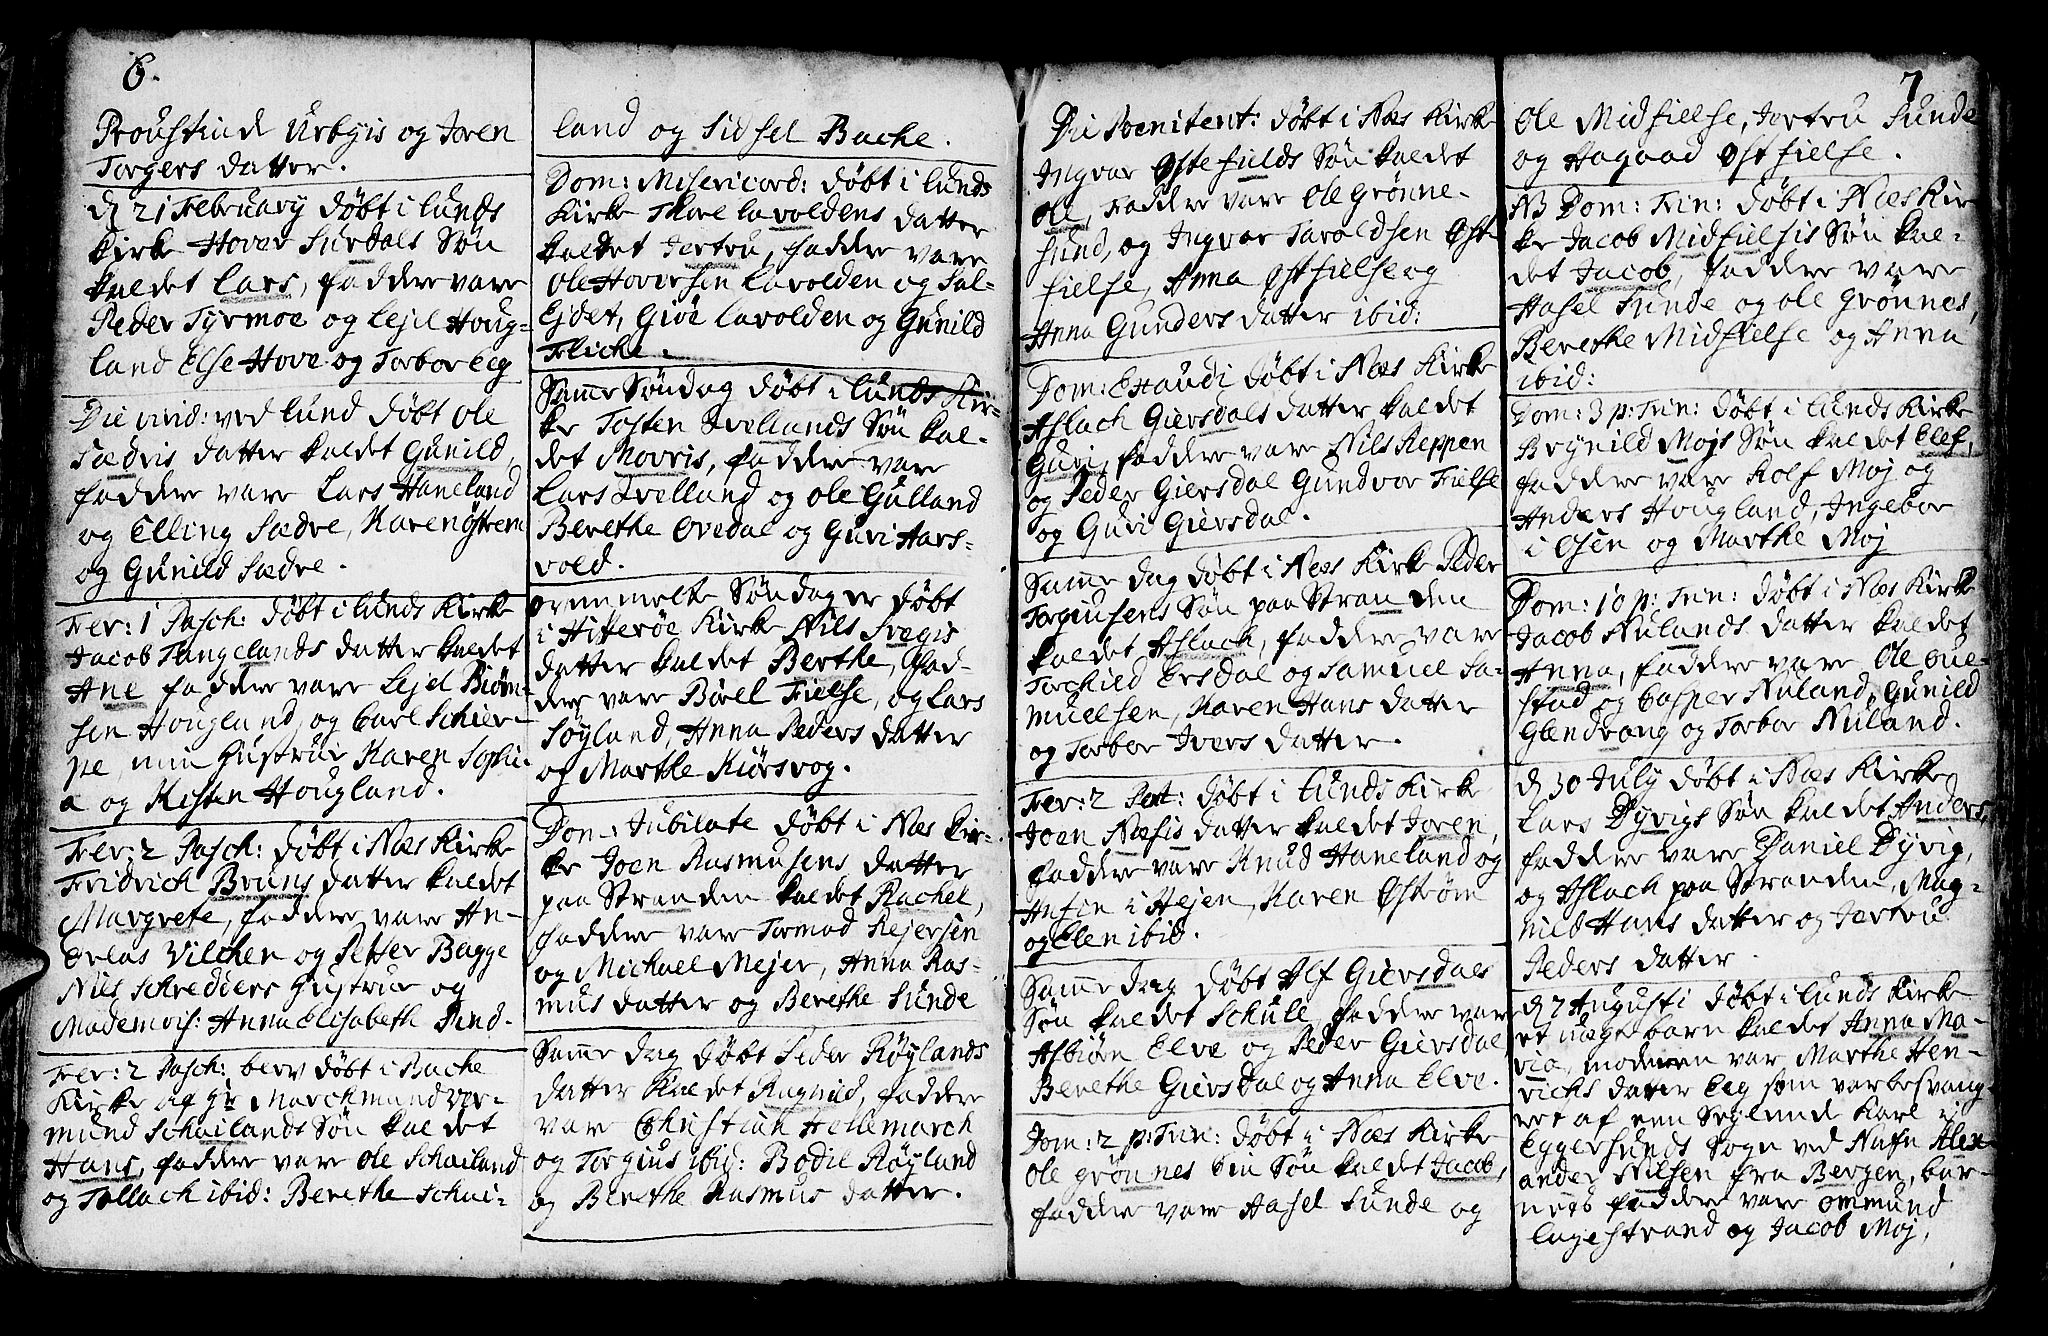 6.
Proustinde Urbyis og Joren
Torgers datter.
d 21 February døbt i Lunds
Kirke Hover Surdals Søn
kaldet Lars, faddere vare
Peder Tyrmoe og Lejel Houg-
land Else Hove og Torbor Eeg
Die vivid: ved Lund døbt Ole
Sædris datter kaldet Gunild,
faddere vare Lars Haneland
og Elling Sædre, Karen Østrem
og Gunild Sædre.
Fer: 1 Pasch: døbt i Lunds Kirke
Jacob Tangelands datter kaldet
Ane faddere vare Lejel Biørn-
sen Hougland, og Carl Schier-
pe, min Hustrue Karen Sophi-
a og Kisten Hougland.
Fer: 2 Pasch: døbt i Næs Kirke
Fridrich Bruns datter kaldet
Margrete, faddere vare An-
dreas Vilchen og Petter Bagge
Nils Schredders Hustrue og
Mademois: Anna Elisabeth Pind.
Fer: 2 Pasch: blev døbt i Bache
Kirke af Hr Marchmand Ver-
mund Schailands Søn kaldet
Hans, faddere vare Ole Schailand
og Tollach ibid: Berethe Schai-
land og Sidsel Bache.
Dom: Misericord: døbt i Lunds
Kirke Thore Lavoldens datter
kaldet Jertru, faddere vare
Ole Hoversen Lavolden og Sal-
Ejdet, Giøe Lavolden og Gunild
Fliche.
Samme Søndag døbt i Lunds Kir-
ke Tosten Ivellands Søn kal-
det Movris, faddere vare
Lars Ivelland og Ole Gulland
Berethe Ovedal og Guri Aars-
vold.
Ovenmelte Søndag er døbt
i Hiterøe Kirke Nils Svegis
datter kaldet Berthe, fad-
dere vare Børel Fielse, og Lars
Søyland, Anna Peders datter
og Marthe Kiørsvog.
Dom: Jubilate døbt i Næs Kir-
ke Joen Rasmusens datter
paa Stranden kaldet Rachel,
faddere vare Tormod Rejersen
og Michael Mejer, Anna Ras-
mus datter og Berethe Sunde
Samme dag døbt Peder Røylands
datter kaldet Ragnild, faddere
vare Christian Tellemarch
og Torgius ibid: Bodil Røyland
og Berethe Rasmus datter.
Die Poenitent: døbt i Næs Kirke
Ingvar Østefields Søn kaldet
Ole, faddere vare Ole Grønne-
sund, og Ingvar Taraldsen Øst-
fielse, Anna Østfielse og
Anna Gunders datter ibid:
Dom: Exaudi døbt i Næs Kirke
Aslach Giersdals datter kaldet
Guri, faddere vare Nils Reppen
og Peder Giersdal Gundvor Fielse
og Guri Giersdal.
Samme dag døbt i Næs Kirke Peder
Torgiusens Søn paa Stranden
kaldet Aslach, faddere vare
Torckild Ersdal og Samuel Sa-
muelsen, Karen Hans datter
og Torbor Ivers datter.
Fer: 2 Pent: døbt i Lunds Kirke
Joen Næsis datter kaldet Joren,
faddere vare Knud Haneland og
Ansin i Hejen, Karen Østrøm
og Elen ibid.
Samme dag døbt Alf Giersdals
Søn kaldet Schule, faddere var
Asbiørn Elve og Peder Giersdal,
Berethe Giersdal og Anna Elve.
Dom: 2 p: Trin: døbt i Næs Kirke
Ole Grønnes Ein Søn kaldet Jacob,
faddere vare Aasel Sunde og
7
Ole Midfielse, Jertru Sunde
og Aagaad Østfielse.
NB Dom: Trin: døbt i Næs Kir-
ke Jacob Midfielsis Søn kal-
det Jacob, faddere vare
Aasel Sunde og Ole Grønnes,
Berethe Midfielse og Anna
ibid:
Dom: 3 p: Trin: døbt i Lunds Kirke
Brynild Mojs Søn kaldet Elef,
faddere vare Rolf Moj og
Anders Hougland, Ingebor
i Osen og Marthe Moj
Dom: 10 p: Trin: døbt i Næs Kirke
Jacob Nulands datter kaldet
Anna, faddere vare Ole Que-
stad og Casper Nuland, Gunild
Glendrang og Torbor Nuland.
d 30 July døbt i Næs Kirke
Lars Dyvigs Søn kaldet Anders,
faddere vare Daniel Dyvig,
og Aslach paa Stranden, Mag-
nild Hans datter og Jertru
Peders datter.
d 7 Augusti døbt i Lunds Kirke
et uægte barn kaldet Anna Ma-
ria, moderen var Marthe Hen-
richs datter Eeg som var besvang-
ret af een Seglende Karl i
Eggersunds Sogn ved Nafn Alex-
ander Nilsen fra Bergen, bar-
nets faddere vare Ommund
Lagestrand og Jacob Moj,